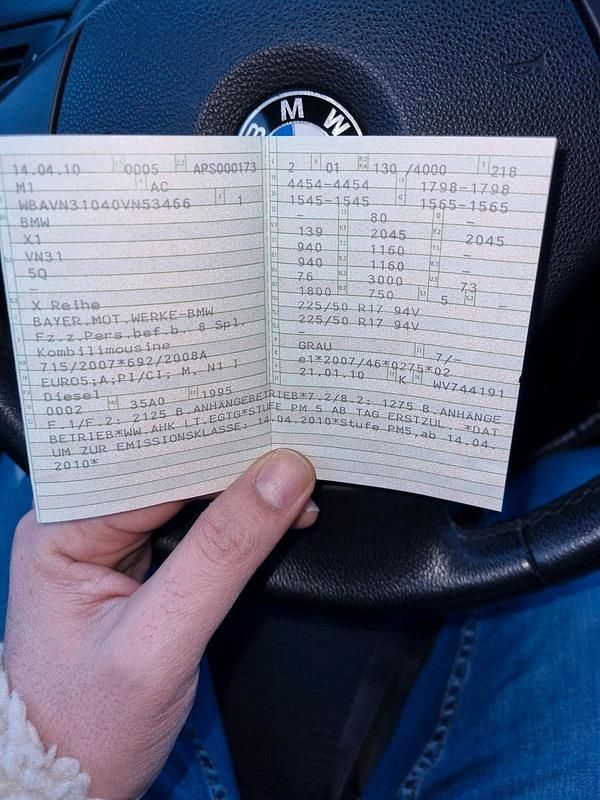 BMW
14.04.10 0005 APS000173
M1 AC
WBAVN31040VN53466 1
BMW
X1
VN31
5Q
–
X Reihe
BAYER.MOT.WERKE-BMW
Fz.z.Pers.bef.b. 8 Spl.
Kombilimousine
715/2007*692/2008A
EURO5;A;PI/CI; M, N1 I
Diesel
0002 35A0 1995
2 01 130 /4000 218
4454-4454 1798-1798
1545-1545 1565-1565
– 80 –
139 2045 2045
940 1160 –
940 1160 –
76 3000 73
1800 750 5 –
225/50 R17 94V
225/50 R17 94V
–
GRAU 7/–
e1*2007/46*0275*02
21.01.10 K WV744191
F.1/F.2: 2125 B.ANHÄNGEBETRIEB*7.2/8.2: 1275 B.ANHÄNGE
BETRIEB*WW.AHK LT.EGTG*STUFE PM 5 AB TAG ERSTZUL. *DAT
UM ZUR EMISSIONSKLASSE: 14.04.2010*Stufe PM5,ab 14.04.
2010*